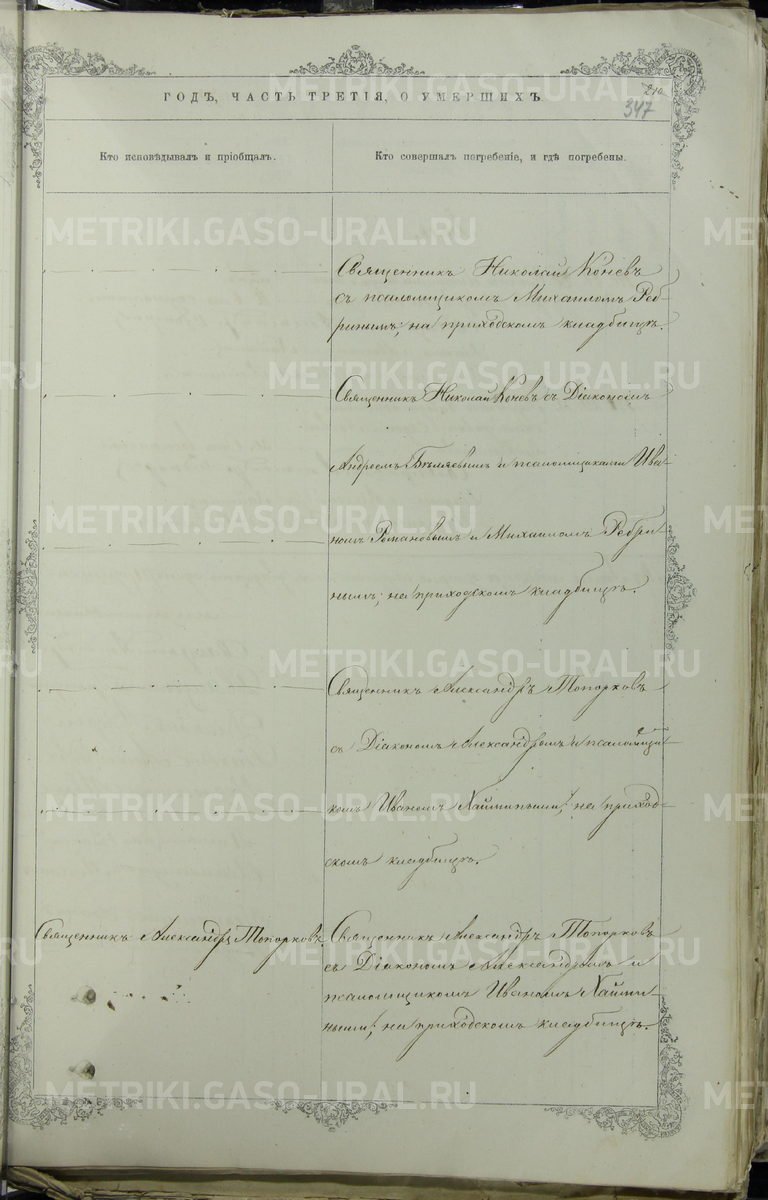 210
347
ГОДЪ, ЧАСТЬ ТРЕТІЯ, О УМЕРШИХЪ
Кто исповѣдывалъ и пріобщалъ.
Кто совершалъ погребеніе, и гдѣ погребены.
Священникъ Николай Коневъ
съ псаломщикомъ Михаиломъ Реб-
ринымъ, на приходскомъ кладбищѣ.
Священникъ Николай Коневъ съ Діакономъ
Андреемъ Бѣляевымъ и псаломщиками Ива-
номъ Романовымъ и Михаиломъ Ребри-
нымъ; на приходскомъ кладбищѣ.
Священникъ Александръ Топорковъ
съ Діакономъ Александромъ и псаломщи-
комъ Иваномъ Наймиными, на приход-
скомъ кладбищѣ.
Священникъ Александръ Топорковъ.
Священникъ Александръ Топорковъ
съ Діакономъ Александромъ и
псаломщикомъ Иваномъ Найми-
ными, на приходскомъ кладбищѣ.
METRIKI.GASO-URAL.RU